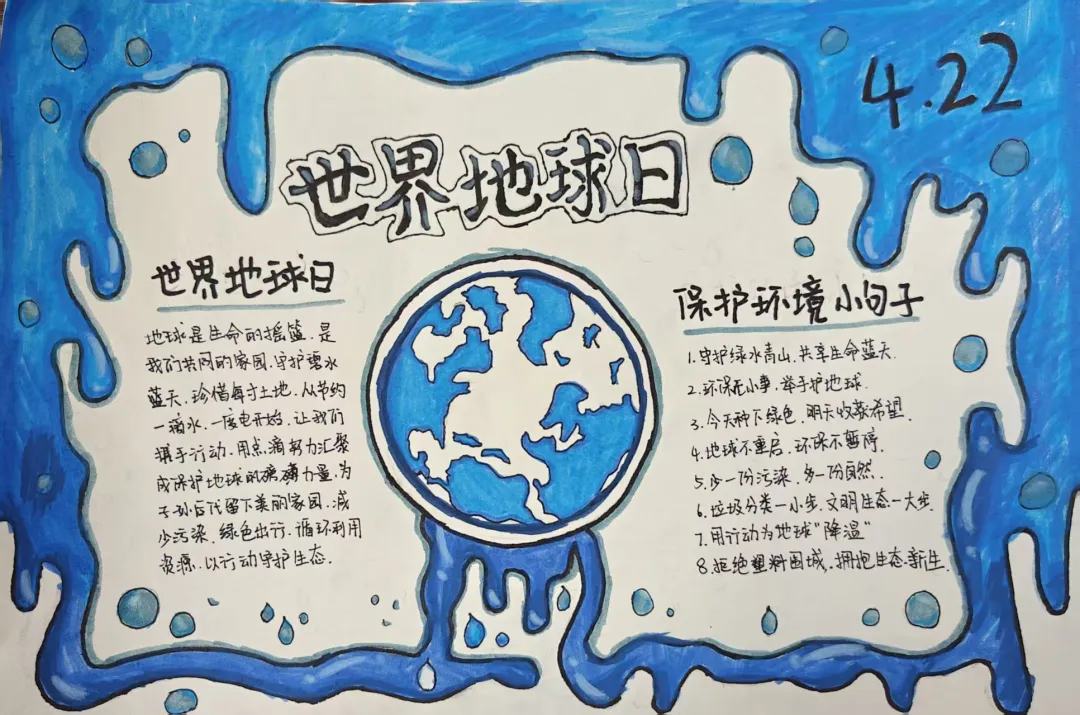 4.22
世界地球日
世界地球日
地球是生命的摇篮.是
我们共同的家园.守护碧水
蓝天.珍惜每寸土地.从节约
一滴水.一度电开始.让我们
携手行动.用点滴努力汇聚
成保护地球的磅礴力量.为
子孙后代留下美丽家园.减
少污染.绿色出行.循环利用
资源.以行动守护生态.
保护环境小句子
1.守护绿水青山.共享生命蓝天.
2.环保无小事.举手护地球.
3.今天种下绿色.明天收获希望.
4.地球不重启.环保不暂停.
5.少一份污染.多一份自然.
6.垃圾分类一小步.文明生态一大步.
7.用行动为地球“降温”
8.拒绝塑料围城.拥抱生态新生.